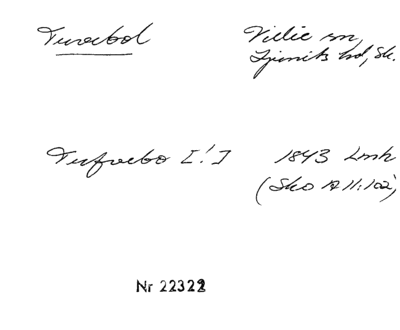 Turebol Villie sn,
Ljunits hd, Sk.
Tufvebo [!] 1843 Lmk
(Sko A II:102)
Nr 22322